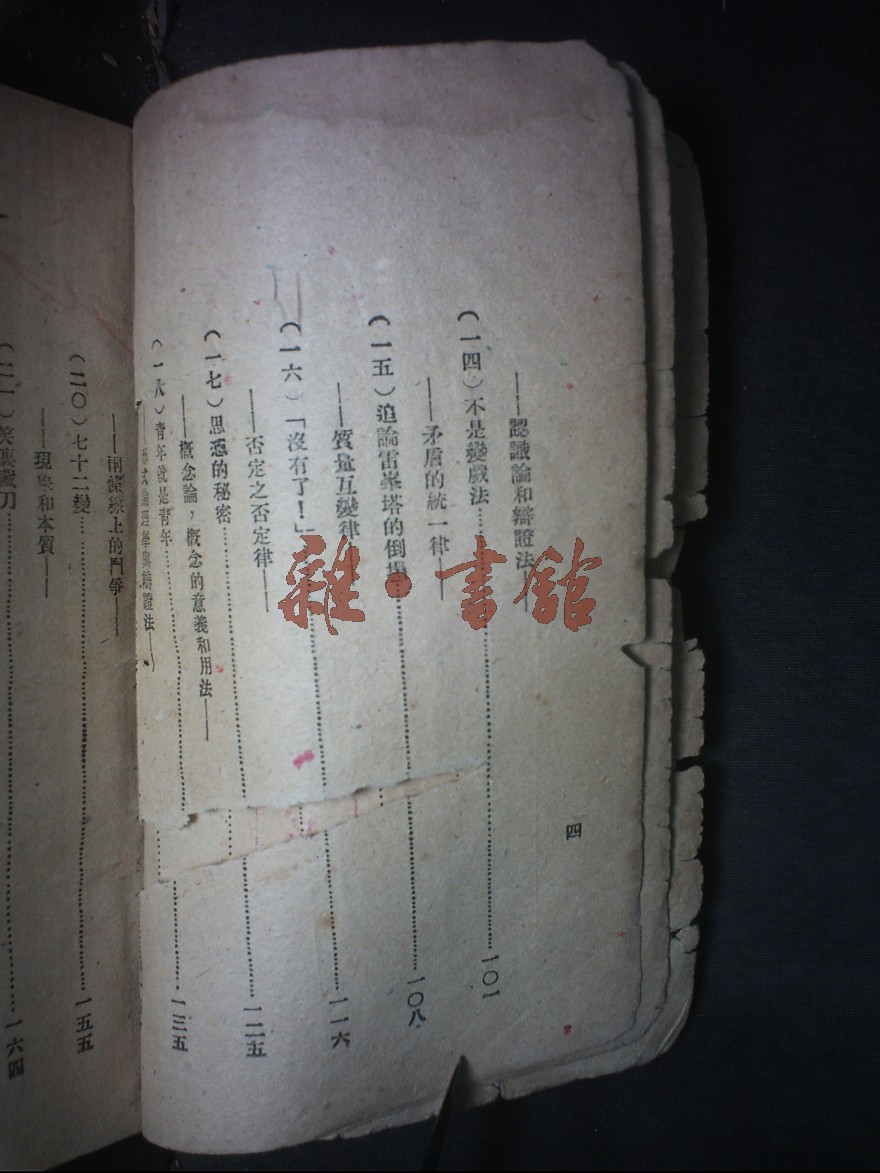 ——認識論和辯證法——
(一四)不是變戲法……一〇一
——矛盾的統一律——
(一五)追論雷峯塔的倒塌……一〇八
——質量互變律——
(一六)「沒有了!」……一一六
——否定之否定律——
(一七)思想的秘密……一二五
——概念論,概念的意義和用法——
(一八)青年就是青年……一三五
——形式論理學與辯證法——
四
——兩條線上的鬥爭——
(二〇)七十二變……一五五
——現象和本質——
(二一)笑裏藏刀……一六四
雜·書館